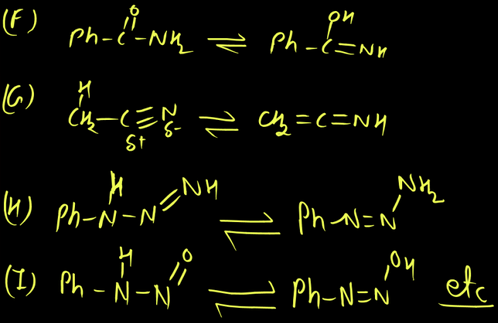 (F) Ph-C(=O)-NH2 ⇌ Ph-C(OH)=NH
(G) CH2(H)-C≡N δ+ δ- ⇌ CH2=C=NH
(H) Ph-N(H)-N=NH ⇌ Ph-N=N-NH2
(I) Ph-N(H)-N=O ⇌ Ph-N=N-OH etc